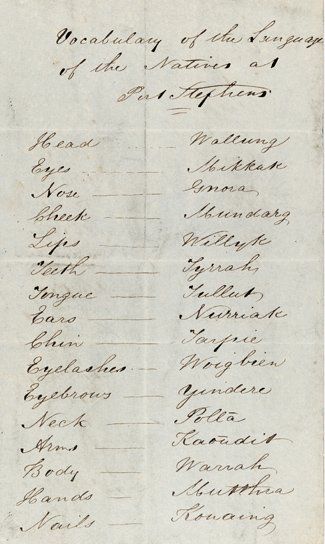 Vocabulary of the Language
of the Natives at
Port Stephens
Head Wallung
Eyes — Mikkak
Nose — Gnora
Cheek — Mundarg
Lips — Willyk
Teeth — Tyrrah
Tongue — Tullut
Ears — Nurriak
Chin — Tarpie
Eyelashes — Woigbien
Eyebrows — Yindere
Neck — Polta
Arms — Kaoudit
Body — Warrah
Hands — Mutthea
Nails — Konaing